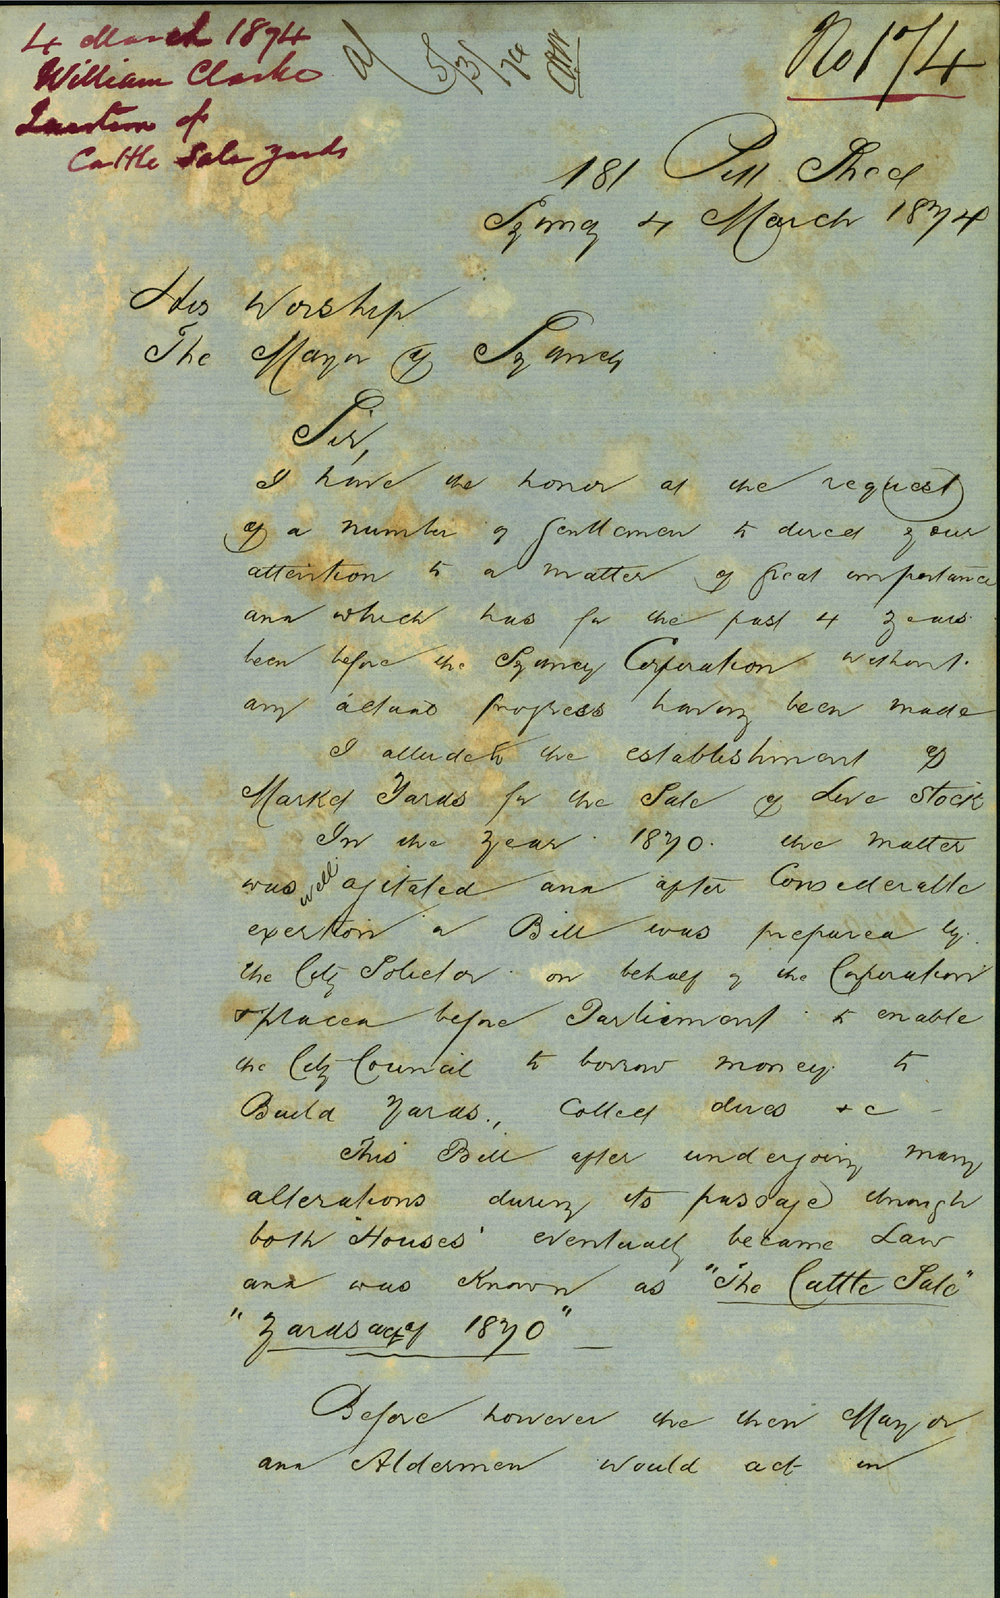 4 March 1874
William Clarke
Question of
Cattle Sale Yards
5/3/74
No 174
181 Pitt Street
Sydney 4 March 1874
His Worship
The Mayor of Sydney
Sir,
I have the honor at the request
of a number of Gentlemen to direct your
attention to a matter of great importance
and which has for the past 4 years
been before the Sydney Corporation without
any actual progress having been made
I allude to the establishment of
Market Yards for the Sale of Live Stock
In the year 1870. the matter
was well agitated and after Considerable
exertion a Bill was prepared by
the City Solicitor on behalf of the Corporation
& placed before Parliament to enable
the City Council to borrow money to
Build Yards., Collect dues &c -
This Bill after undergoing many
alterations during its passage through
both 'Houses' eventually became Law
and was Known as "The Cattle Sale"
"Yards act of 1870" —
Before however the then Mayor
and Aldermen would act in